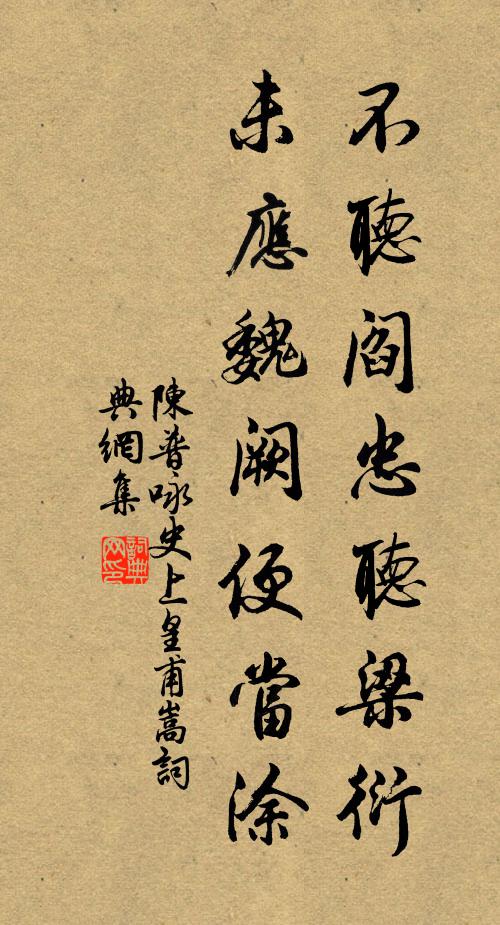 不聽閻忠聽梁衍
未應魏闕便當涂
陳普咏史上皇甫嵩詞
典網集
詞典网印